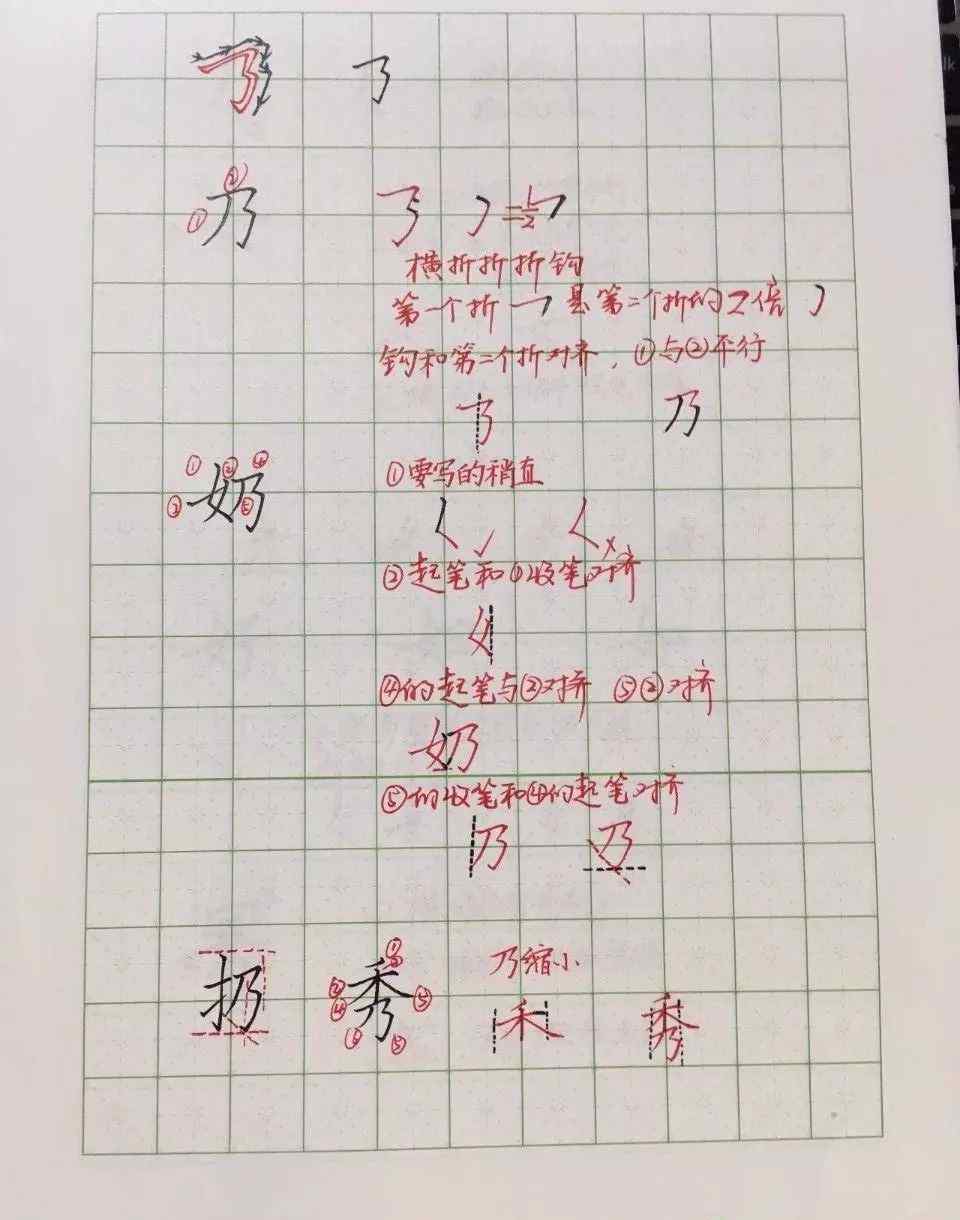 ㇡ ㇡
① ② 乃 = 1/2
横折折折钩
第一个折 是第二个折的2倍
钩和第二个折对齐，①与②平行
乃
① ② ④
奶
①要写的稍直
く ✓ く ×
②起笔和①收笔对挤
女
④的起笔与③对挤 ⑤②对挤
奶
⑤的收笔和④的起笔对挤
乃 乃
扔 秀 乃缩小
① ③ ④ ⑤
禾 秀